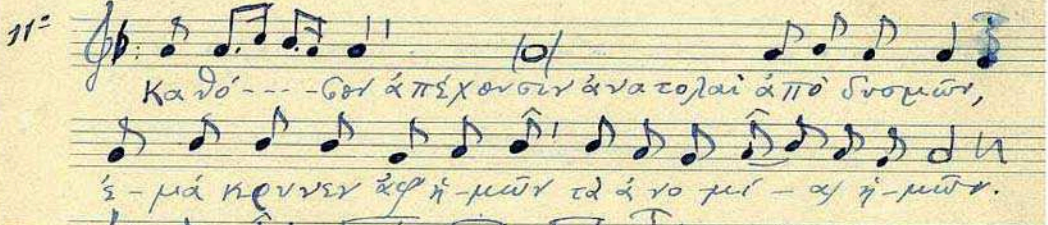 11=
Καθό----σον ἀπέχουσιν ἀνατολαὶ ἀπὸ δυσμῶν,
ἐ-μάκρυνεν ἀφ' ἡ-μῶν τὰ ἀνομί-ας ἡ-μῶν.